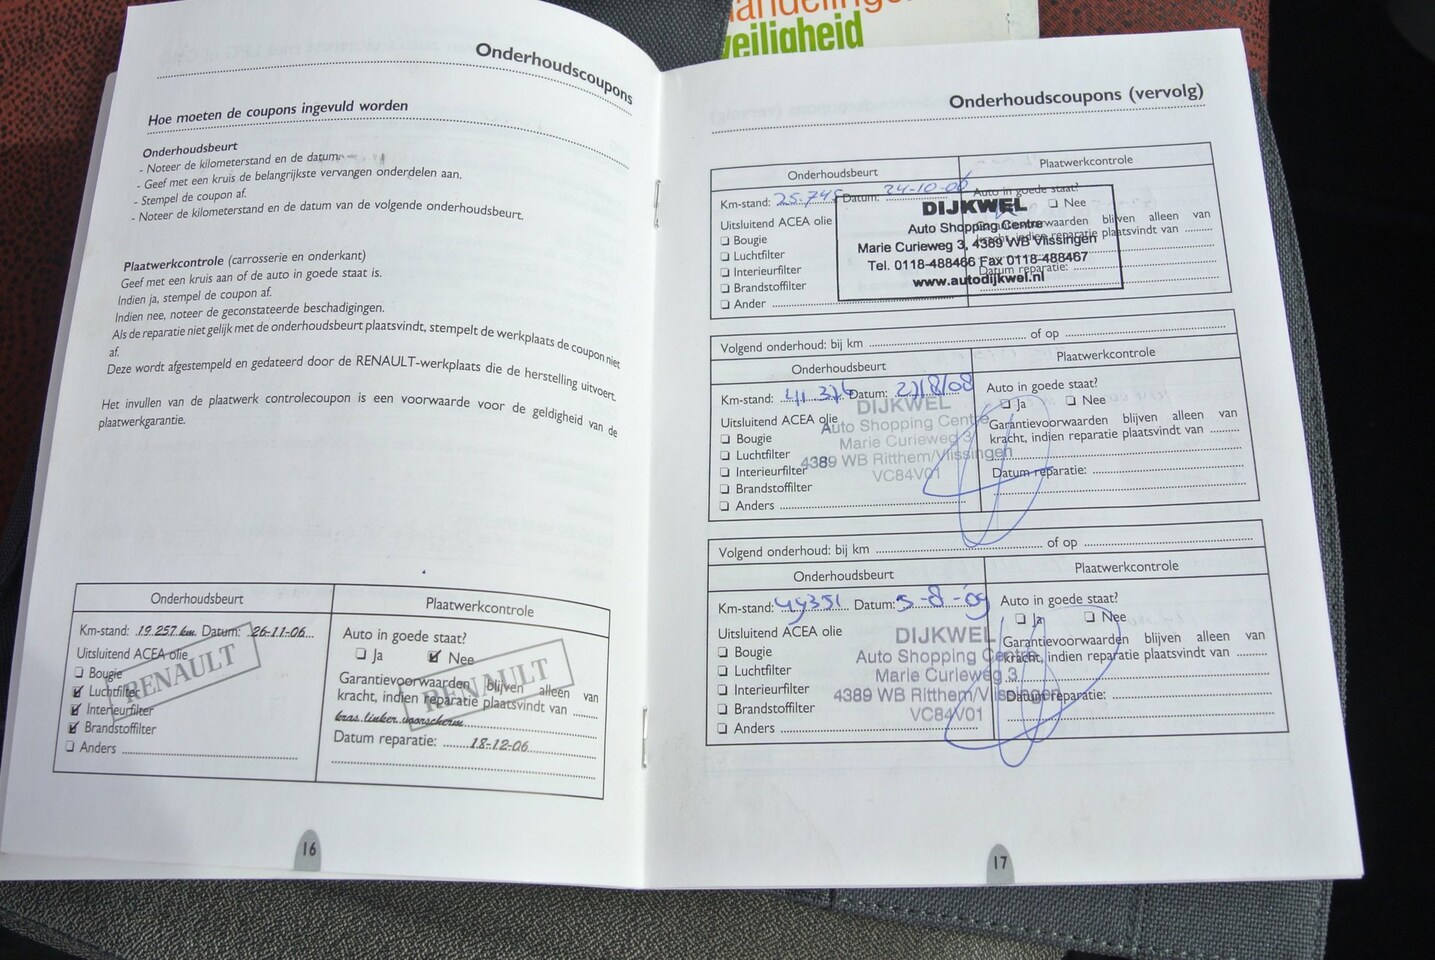 andelingen
veiligheid
Onderhoudscoupons
Hoe moeten de coupons ingevuld worden
Onderhoudsbeurt
- Noteer de kilometerstand en de datum.
- Geef met een kruis de belangrijkste vervangen onderdelen aan.
- Stempel de coupon af.
- Noteer de kilometerstand en de datum van de volgende onderhoudsbeurt.
Plaatwerkcontrole (carrosserie en onderkant)
Geef met een kruis aan of de auto in goede staat is.
Indien ja, stempel de coupon af.
Indien nee, noteer de geconstateerde beschadigingen.
Als de reparatie niet gelijk met de onderhoudsbeurt plaatsvindt, stempelt de werkplaats de coupon niet
af.
Deze wordt afgestempeld en gedateerd door de RENAULT-werkplaats die de herstelling uitvoert.
Het invullen van de plaatwerk controlecoupon is een voorwaarde voor de geldigheid van de
plaatwerkgarantie.
Onderhoudsbeurt
Km-stand: 19.257 km. Datum: 26-11-06
Uitsluitend ACEA olie
Bougie
Luchtfilter
Interieurfilter
Brandstoffilter
Anders
RENAULT
Plaatwerkcontrole
Auto in goede staat?
Ja Nee
Garantievoorwaarden blijven alleen van
kracht, indien reparatie plaatsvindt van
kras linker voorscherm
Datum reparatie: 18-12-06
RENAULT
16
Onderhoudscoupons (vervolg)
Onderhoudsbeurt
Km-stand: 25.745 Datum: 24-10-06
Uitsluitend ACEA olie
Bougie
Luchtfilter
Interieurfilter
Brandstoffilter
Ander
Plaatwerkcontrole
Auto in goede staat?
Nee
Garantievoorwaarden blijven alleen van
kracht, indien reparatie plaatsvindt van
Datum reparatie:
DIJKWEL
Auto Shopping Centre
Marie Curieweg 3, 4389 WB Vlissingen
Tel. 0118-488466 Fax 0118-488467
www.autodijkwel.nl
Volgend onderhoud: bij km of op
Onderhoudsbeurt
Km-stand: 41.376 Datum: 27/8/08
Uitsluitend ACEA olie
Bougie
Luchtfilter
Interieurfilter
Brandstoffilter
Anders
DIJKWEL
Auto Shopping Centre
Marie Curieweg 3
4389 WB Ritthem/Vlissingen
VC84V01
Plaatwerkcontrole
Auto in goede staat?
Ja Nee
Garantievoorwaarden blijven alleen van
kracht, indien reparatie plaatsvindt van
Datum reparatie:
Volgend onderhoud: bij km of op
Onderhoudsbeurt
Km-stand: 49351 Datum: 5-8-09
Uitsluitend ACEA olie
Bougie
Luchtfilter
Interieurfilter
Brandstoffilter
Anders
DIJKWEL
Auto Shopping Centre
Marie Curieweg 3
4389 WB Ritthem/Vlissingen
VC84V01
Plaatwerkcontrole
Auto in goede staat?
Ja Nee
Garantievoorwaarden blijven alleen van
kracht, indien reparatie plaatsvindt van
Datum reparatie:
17